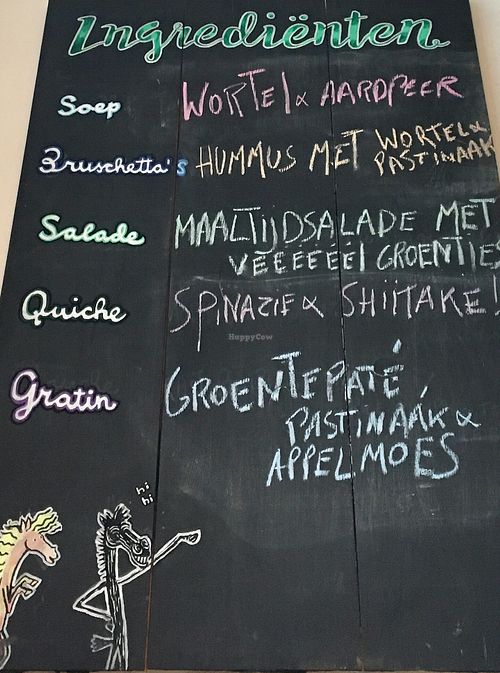 Ingrediënten
Soep WORTEL & AARDPEER
Bruschetta's HUMMUS MET WORTEL &
PASTINAAK
Salade MAALTIJDSALADE MET
VEEEEEEL GROENTJES
Quiche SPINAZIE & SHIITAKE!
HappyCow
Gratin GROENTEPATÉ,
PASTINAAK &
APPELMOES
hi
hi